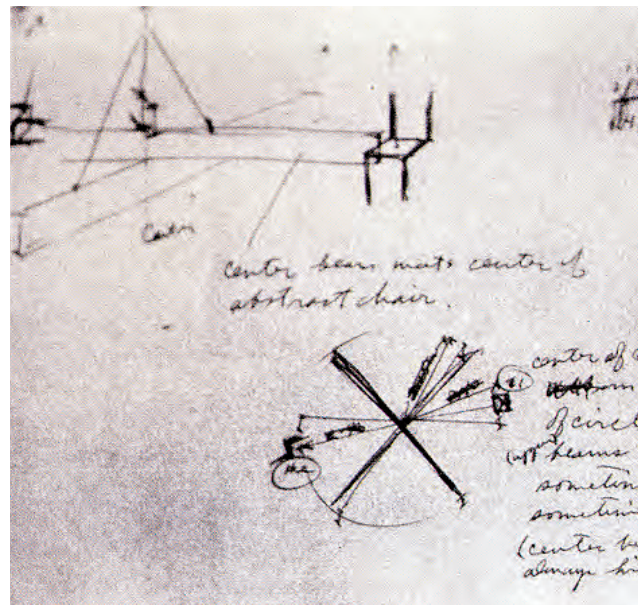 center
center beam meets center of
abstract chair.
center of
of circl
beams
sometim
sometim
(center be
always hi